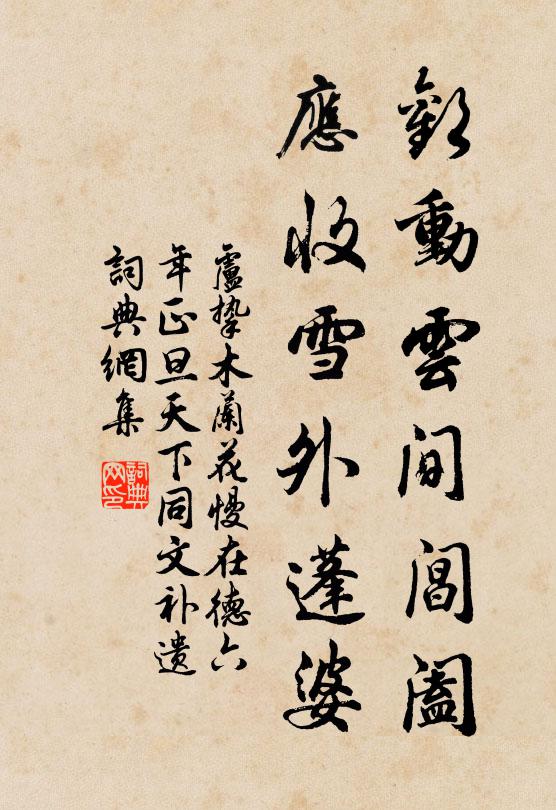 歡動雲間閶闔
應收雪外蓬婆
盧摯木蘭花慢在德六
年正旦天下同文补遗
詞典網集
詞典網印